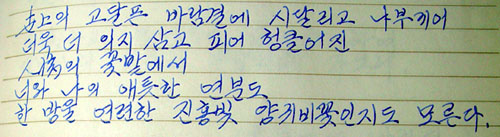 世上의 고달픈 바람결에 시달리고 나부끼어
더욱 더 의지 삼고 피어 헝클어진
人情의 꽃밭에서
너와 나의 애틋한 연분도
한 방울 연련한 진홍빛 양귀비꽃인지도 모른다.